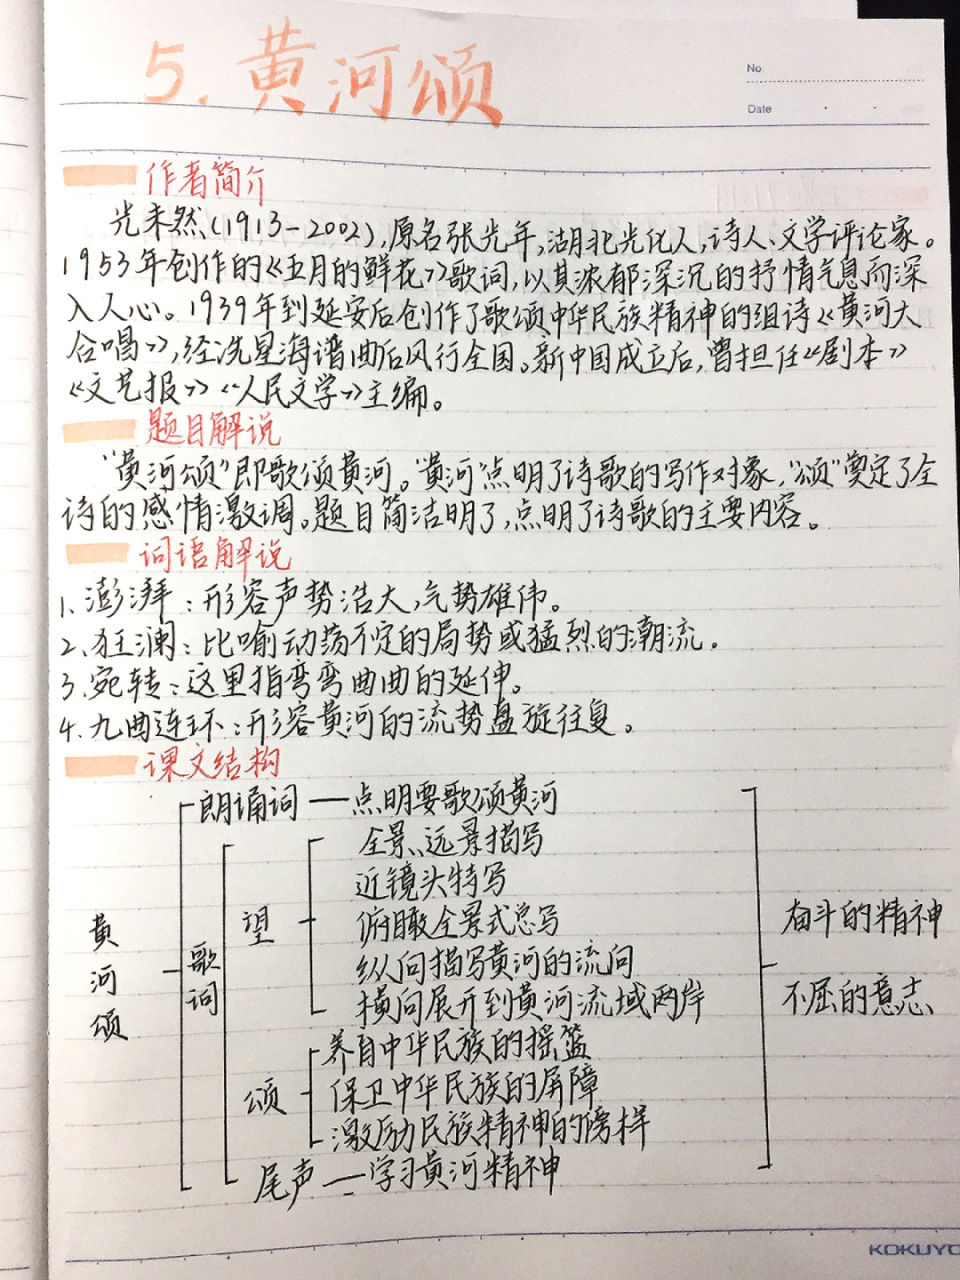 5.黄河颂
No.
Date
作者简介
光未然(1913-2002),原名张光年,湖北光化人,诗人、文学评论家。
1953年创作的《五月的鲜花》歌词,以其浓郁深沉的抒情气息而深
入人心。1939年到延安后创作了歌颂中华民族精神的组诗《黄河大
合唱》,经冼星海谱曲后风行全国。新中国成立后,曾担任《剧本》
《文艺报》《人民文学》主编。
题目解说
“黄河颂”即歌颂黄河。“黄河”点明了诗歌的写作对象,“颂”奠定了全
诗的感情激调。题目简洁明了,点明了诗歌的主要内容。
词语解说
1.澎湃:形容声势浩大,气势雄伟。
2.狂澜:比喻动荡不定的局势或猛烈的潮流。
3.宛转:这里指弯弯曲曲的延伸。
4.九曲连环:形容黄河的流势盘旋往复。
课文结构
黄河颂
朗诵词——点明要歌颂黄河
歌词
望
全景、远景描写
近镜头特写
俯瞰全景式总写
纵向描写黄河的流向
横向展开到黄河流域两岸
颂
养育中华民族的摇篮
保卫中华民族的屏障
激励民族精神的榜样
尾声——学习黄河精神
奋斗的精神
不屈的意志
KOKUYO